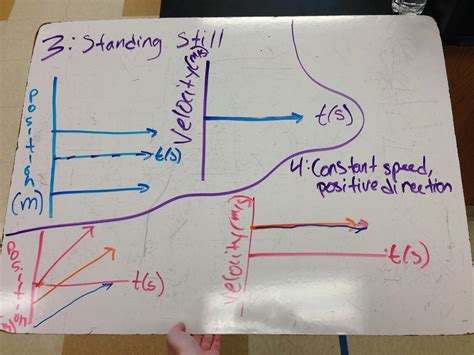 3: Standing Still
Position
(m)
t(s)
Velocity(m/s)
t(s)
4: Constant speed,
positive direction
Position
(m)
t(s)
Velocity(m/s)
t(s)